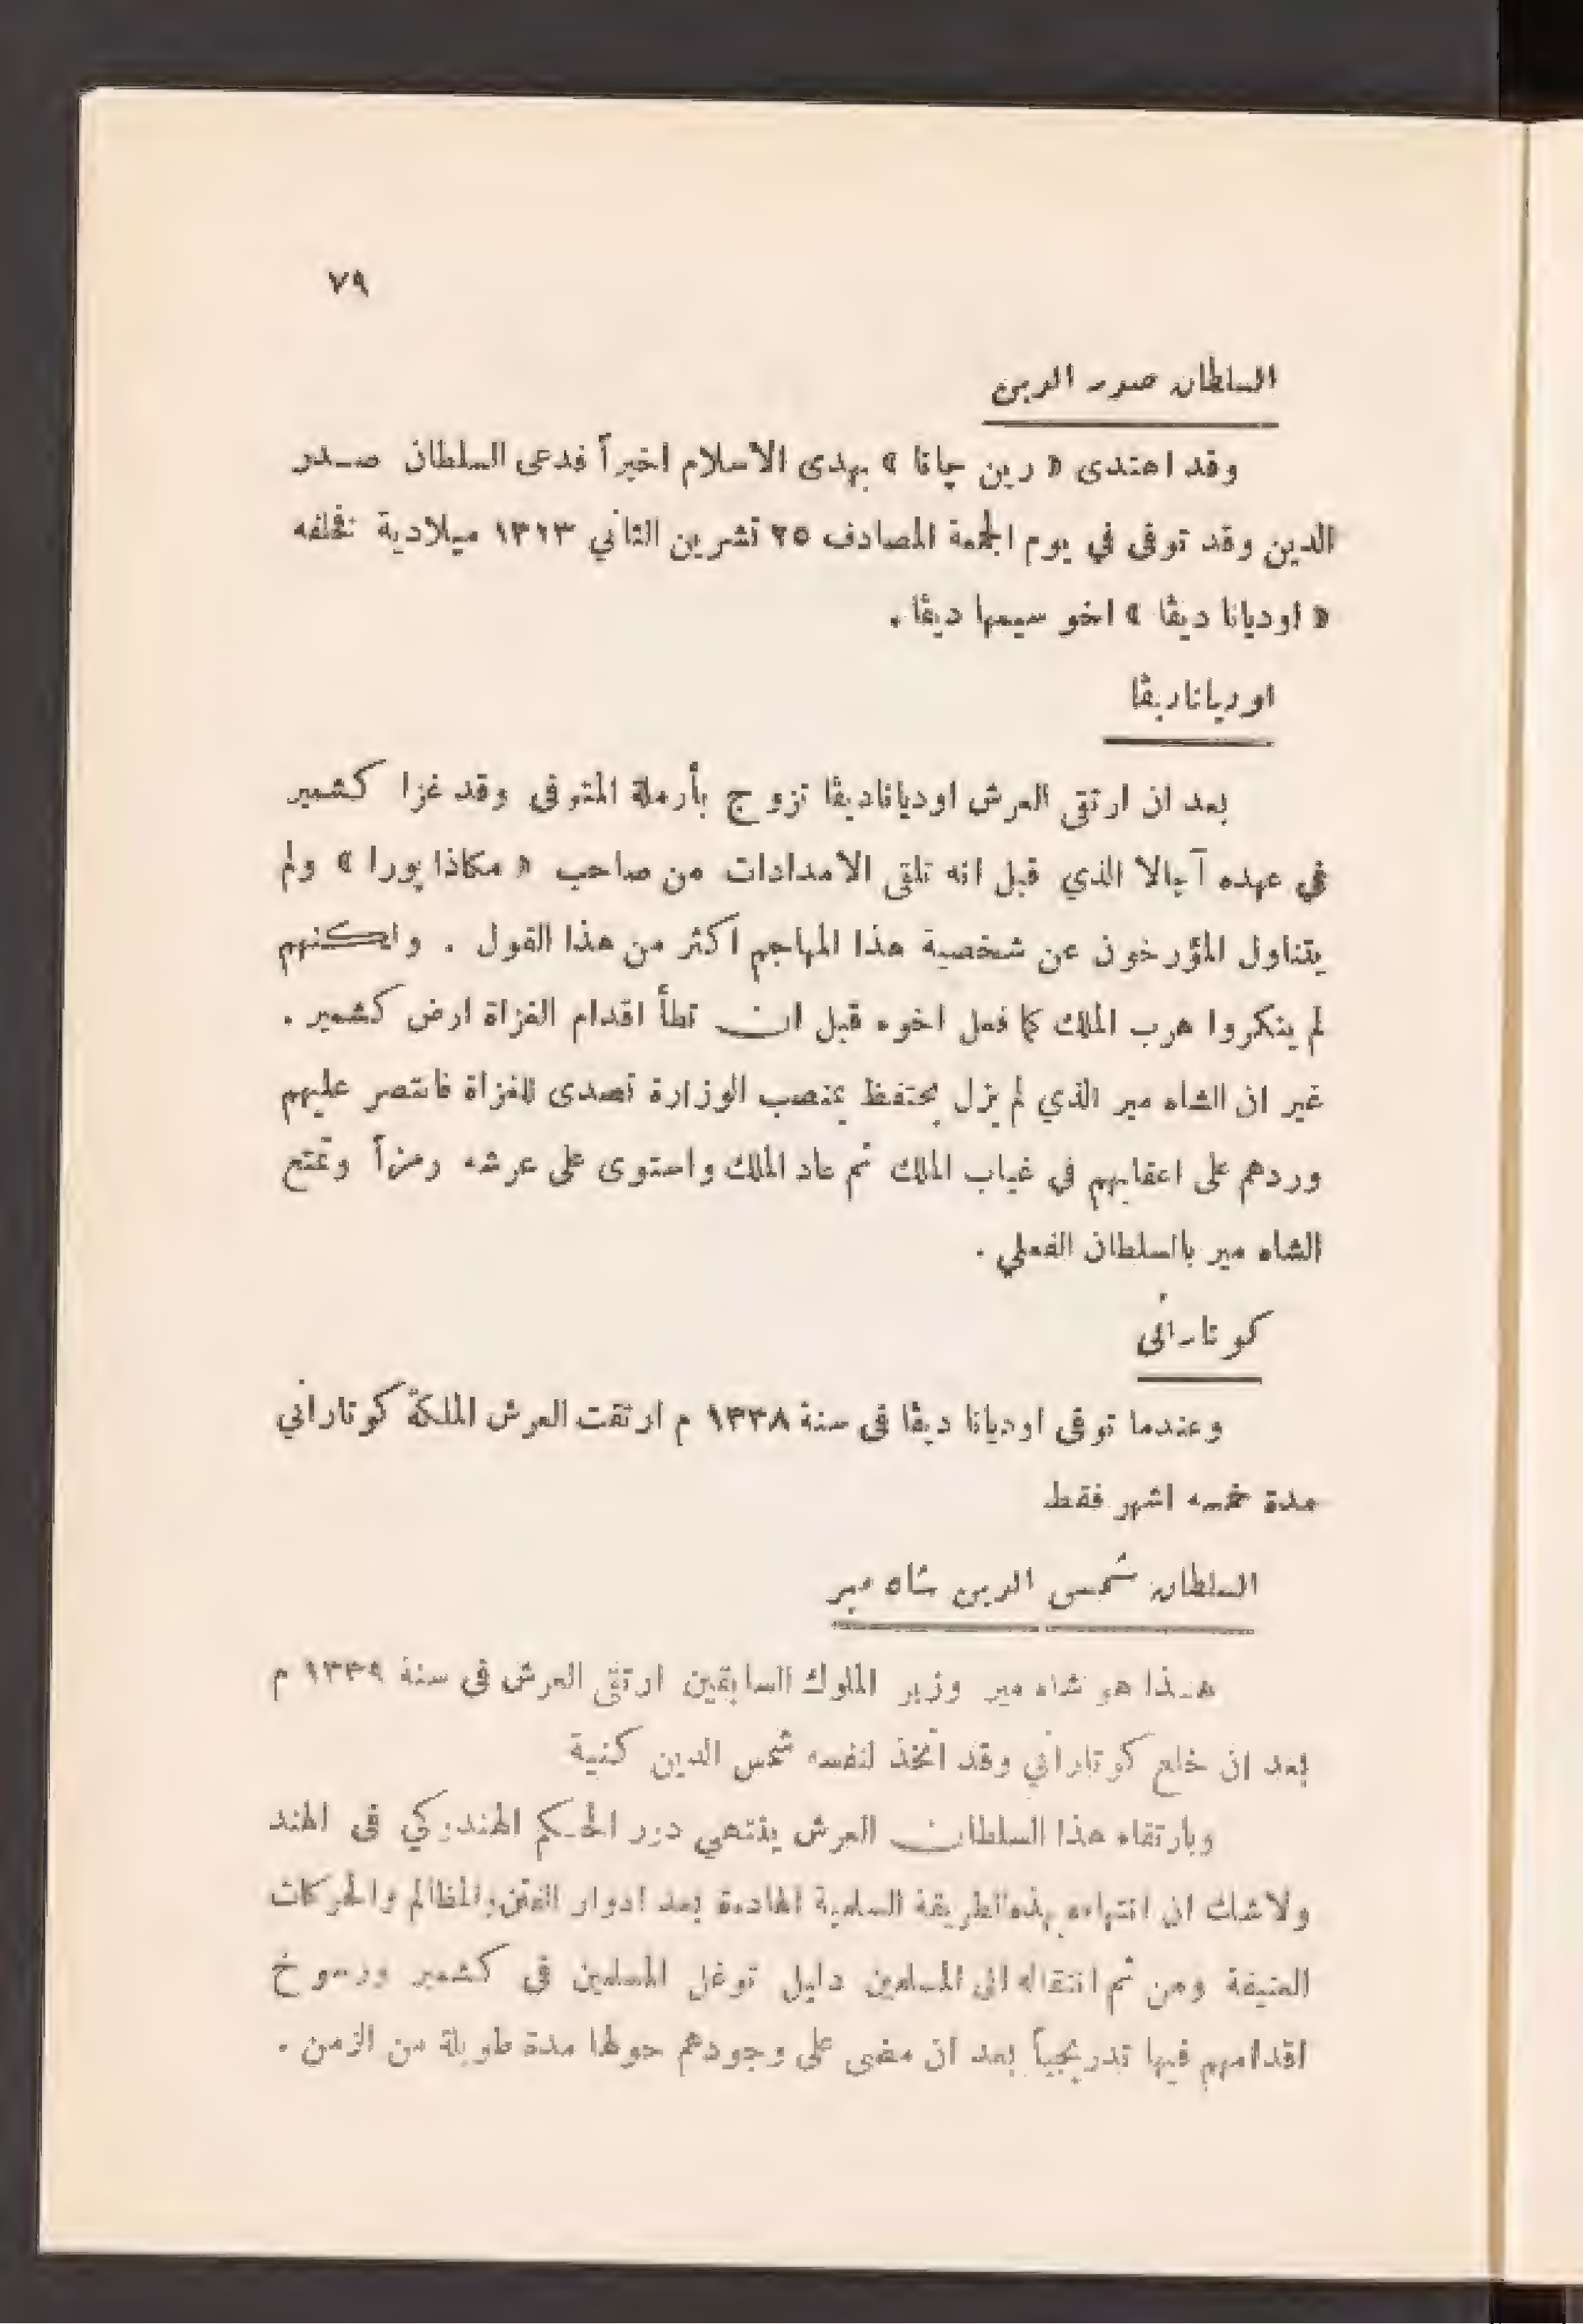 ٧٩
السلطان صدر الدين
وقد اهتدى « رين چانا » بهدى الاسلام اخيراً فدعى السلطان صـدر
الدين وقد توفى في يوم الجمعة المصادف ٢٥ تشرين الثاني ١٣١٣ ميلادية فخلفه
« اوديانا ديڤا » اخو سيمها ديڤا .
اودياناديڤا
بعد ان ارتقى العرش اودياناديڤا تزوج بأرملة المتوفى وقد غزا كشمير
في عهده آچالا الذي قيل انه تلقى الامدادات من صاحب « مكاذا پورا » ولم
يتناول المؤرخون عن شخصية هذا المهاجم اكثر من هذا القول . ولكنهم
لم ينكروا هرب الملك كما فعل اخوه قبل ان تطأ اقدام الغزاة ارض كشمير .
غير ان الشاه مير الذي لم يزل يحتفظ بمنصب الوزارة تصدى للغزاة فانتصر عليهم
وردهم على اعقابهم في غياب الملك ثم عاد الملك واستوى على عرشه رمزاً وتمتع
الشاه مير بالسلطان الفعلي .
كوتاراني
وعندما توفى اوديانا ديڤا فى سنة ١٣٣٨ م ارتقت العرش الملكة كوتاراني
مدة خمسه اشهر فقط
السلطان شمس الدين شاه مير
هـذا هو شاه مير وزير الملوك السابقين ارتقى العرش فى سنة ١٣٣٩ م
بعد ان خلع كوتاراني وقد اتخذ لنفسه شمس الدين كنية
وبارتقاء هذا السلطان العرش ينتهي دور الحـكم الهندوكي فى الهند
ولاشك ان انتهاءه بهذه الطريقة السلمية الهادءة بعد ادوار الفتن والمظالم والحركات
العنيفة ومن ثم انتقاله الى المسلمين دليل توغل المسلمين فى كشمير ورسوخ
اقدامهم فيها تدريجياً بعد ان مضى على وجودهم حولها مدة طويلة من الزمن .